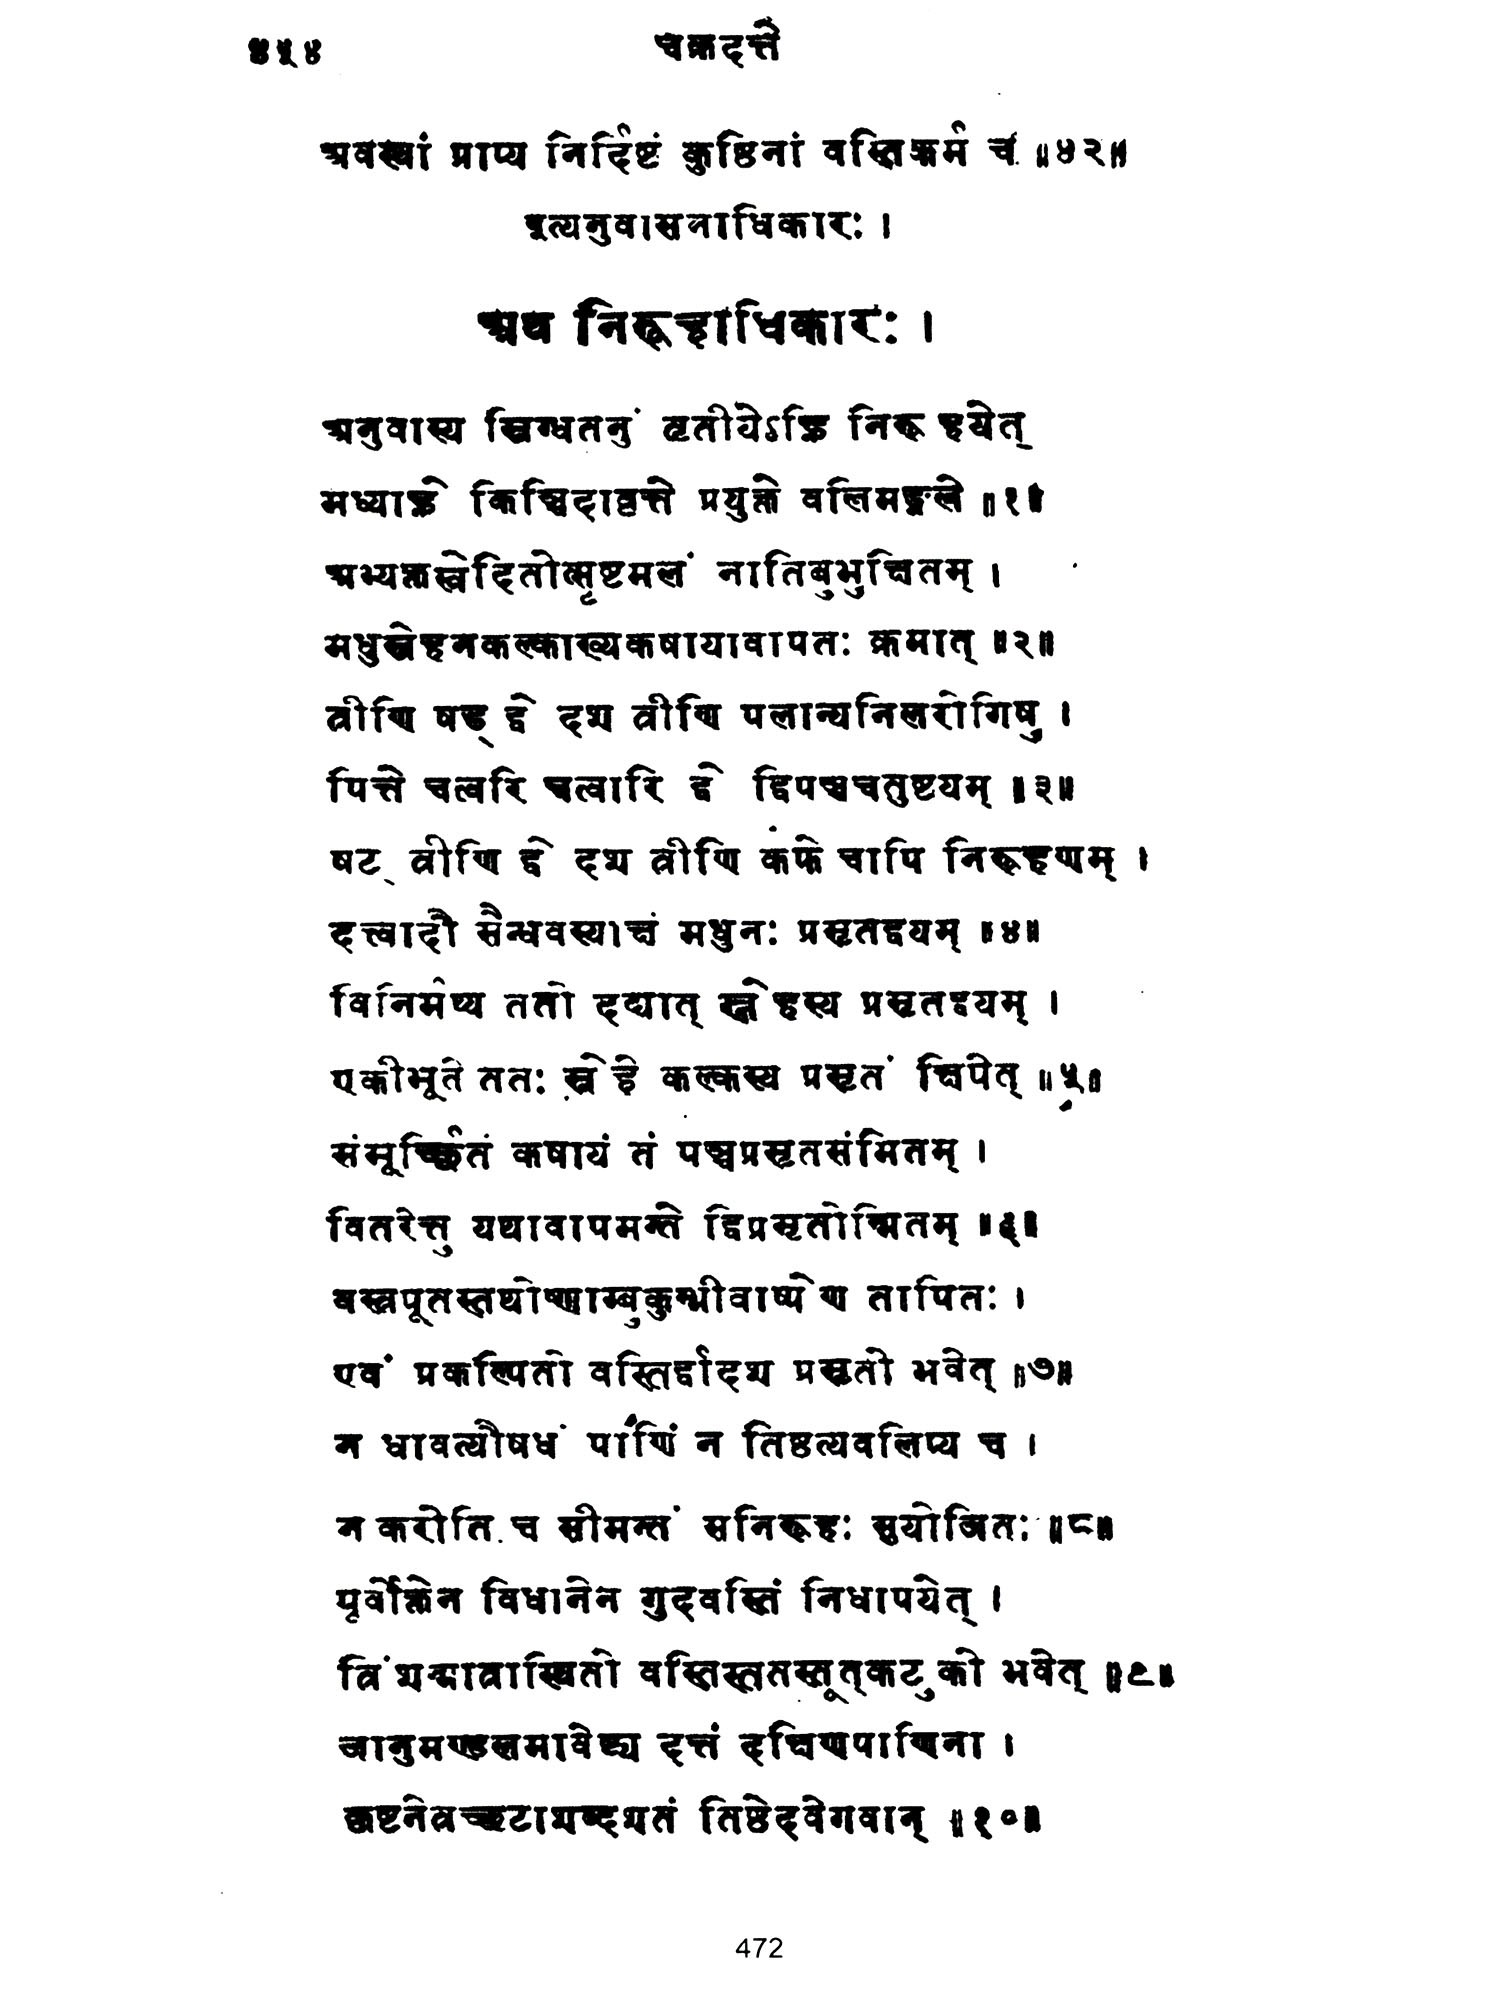 ४५४ चक्रदत्ते
अवस्थां प्राप्य निर्दिष्टं कुष्ठिनां वस्तिकर्म च ॥४२॥
इत्यनुवासनाधिकारः ।
अथ निरूहाधिकारः ।
अनुवास्य स्निग्धतनुं तृतीयेऽह्नि निरूहयेत्
मध्याह्ने किञ्चिदावृत्ते प्रयुक्ते वलिमङ्गले ॥१॥
अभ्यक्तस्वेदितोत्सृष्टमलं नातिबुभुक्षितम् ।
मधुस्नेहनकल्काख्यकषायावापतः क्रमात् ॥२॥
त्रीणि षड् द्वे दश त्रीणि पलान्यनिलरोगिषु ।
पित्ते चत्वरि चत्वारि द्वे द्विपञ्चचतुष्टयम् ॥३॥
षट् त्रीणि द्वे दश त्रीणि कफे चापि निरूहणम् ।
दत्त्वादौ सैन्धवस्याक्षं मधुनः प्रसृतद्वयम् ॥४॥
विनिर्मथ्य ततो दद्यात् स्नेहस्य प्रसृतद्वयम् ।
एकीभूते ततः स्नेहे कल्कस्य प्रसृतं क्षिपेत् ॥५॥
संमूर्च्छितं कषायं तं पञ्चप्रसृतसंमितम् ।
वितरेत्तु यथावापमन्ते द्विप्रसृतोन्मितम् ॥६॥
वस्त्रपूतस्तथोष्णाम्बुकुम्भीवाष्पेण तापितः ।
एवं प्रकल्पितो वस्तिर्द्वादश प्रसृतो भवेत् ॥७॥
न धावत्यौषधं पाणिं न तिष्ठत्यवलिप्य च ।
न करोति च सीमन्तं सनिरूहः सुयोजितः ॥८॥
पूर्वोक्तेन विधानेन गुदवस्तिं निधापयेत् ।
त्रिंशन्मात्रास्थितो वस्तिस्ततस्तूत्कटुको भवेत् ॥९॥
जानुमण्डलमावेष्ट्य दत्तं दक्षिणपाणिना ।
कृष्टनेत्रच्छटाशब्दशतं तिष्ठेदवेगवान् ॥१०॥
472